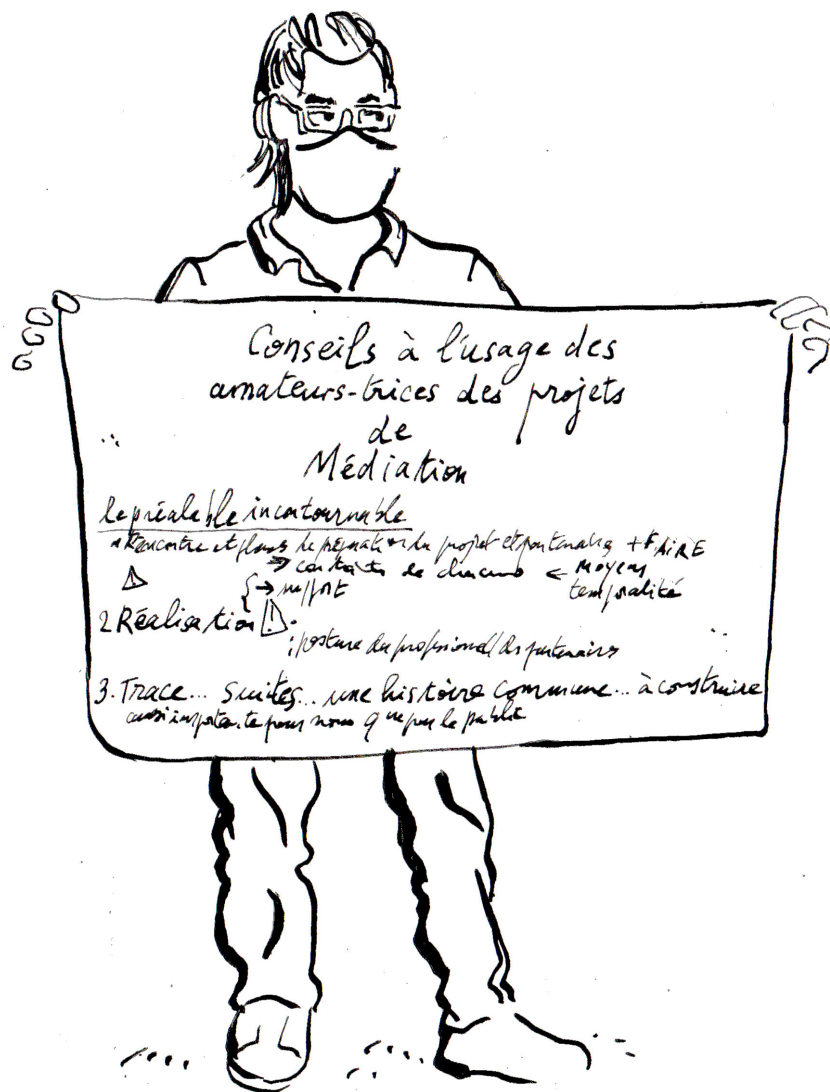 Conseils à l'usage des
amateurs-trices des projets
de
Médiation
le préalable incontournable
Rencontre et du projet et partenaires + FAIRE
de chacun ← Moyens
temporalité
→ support
2 Réalisation
posture du professionnel/des partenaires
3. Trace... suites... une histoire commune... à construire
aussi importante pour nous que pour le public